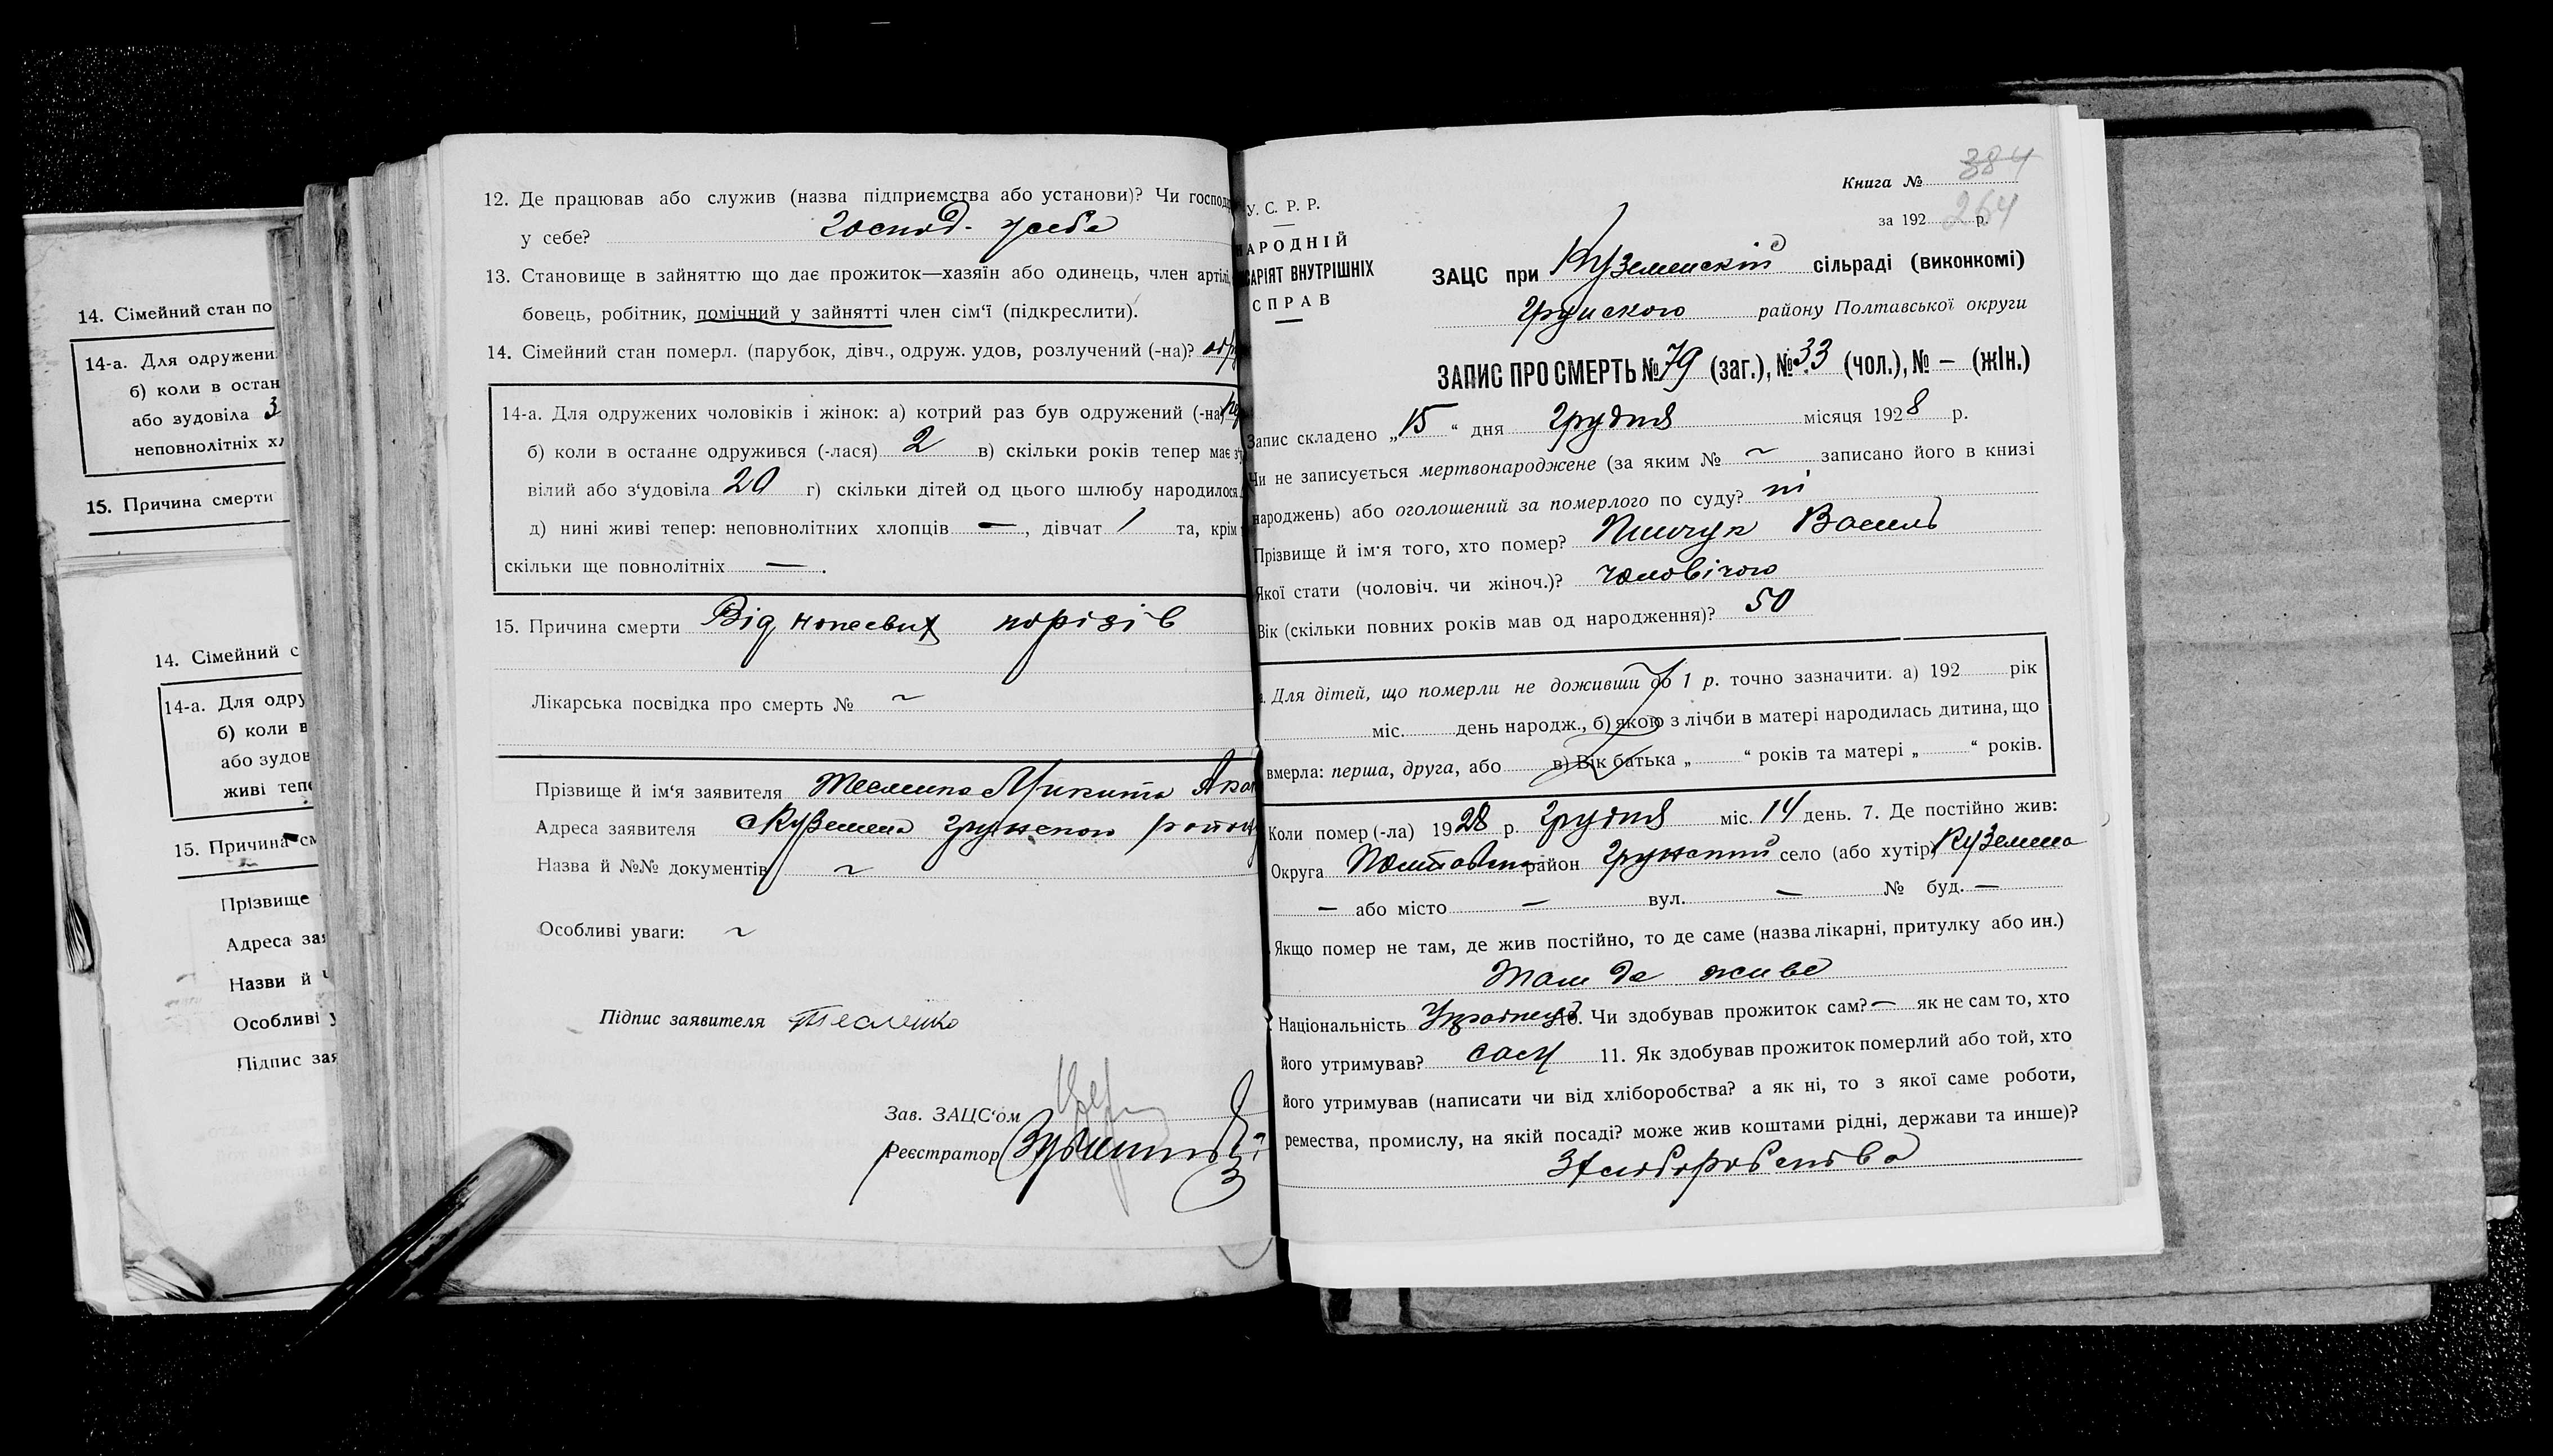 14. Сімейний стан по
14-а. Для одружени
б) коли в остан
або зудовіла 3
неповнолітніх хл
15. Причина смерти
14. Сімейний с
14-а. Для одру
б) коли в
або зудов
живі теп
15. Причина см
Прізвище
Адреса зая
Назви й ч
Особливі у
Підпис зая
12. Де працював або служив (назва підприємства або установи)? Чи господ
у себе? господ. у себе
13. Становище в зайняттю що дає прожиток—хазяїн або одинець, член артілі,
бовець, робітник, помічний у зайнятті член сім‘ї (підкреслити).
14. Сімейний стан померл. (парубок, дівч., одруж. удов, розлучений (-на)? одр
14-а. Для одружених чоловіків і жінок: а) котрий раз був одружений (-на)
б) коли в останнє одружився (-лася) 2 в) скільки років тепер має з‘у
вілий або з‘удовіла 20 г) скільки дітей од цього шлюбу народилося
д) нині живі тепер: неповнолітких хлопців —, дівчат 1 та, крім
скільки ще повнолітніх — .
15. Причина смерти Від порізів
Лікарська посвідка про смерть № ~
Прізвище й ім‘я заявителя Микита
Адреса заявителя с Куземена грунського
Назва й №№ документів ~
Особливі уваги: ~
Підпис заявителя Тесленко
Зав. ЗАЦС‘ом
Реєстратор
Книга № 384
264
за 192 р.
У. С. Р. Р.
НАРОДНІЙ
САРІЯТ ВНУТРІШНІХ
СПРАВ
ЗАЦС при Куземенскій сільраді (виконкомі)
Грунского району Полтавської округи
ЗАПИС ПРО СМЕРТЬ № 79 (заг.), № 33 (чол.), № — (жін.)
Запис складено „15“ дня Грудня місяця 1928 р.
Чи не записується мертвонароджене (за яким № ~ записано його в книзі
народжень) або оголошений за померлого по суду? ні
Прізвище й ім‘я того, хто помер? Василь
Якої стати (чоловіч. чи жіноч.)? чоловічого
Вік (скільки повних років мав од народження)? 50
Для дітей, що померли не доживши до 1 р. точно зазначити. а) 192 рік
міс. день народж., б) якою з лічби в матері народилась дитина, що
вмерла: перша, друга, або в) Вік батька „ “ років та матері „ “ років.
Коли помер (-ла) 1928 р. Грудня міс. 14 день. 7. Де постійно жив:
Округа Полтавська район Грунський село (або хутір) Куземена
— або місто — вул. — № буд. —
Якщо помер не там, де жив постійно, то де саме (назва лікарні, притулку або ин.)
там де живе
Національність Українець 10. Чи здобував прожиток сам? — як не сам то, хто
його утримував? сам 11. Як здобував прожиток померлий або той, хто
його утримував (написати чи від хліборобства? а як ні, то з якої саме роботи,
ремества, промислу, на якій посаді? може жив коштами рідні, держави та инше)?
З хліборобства